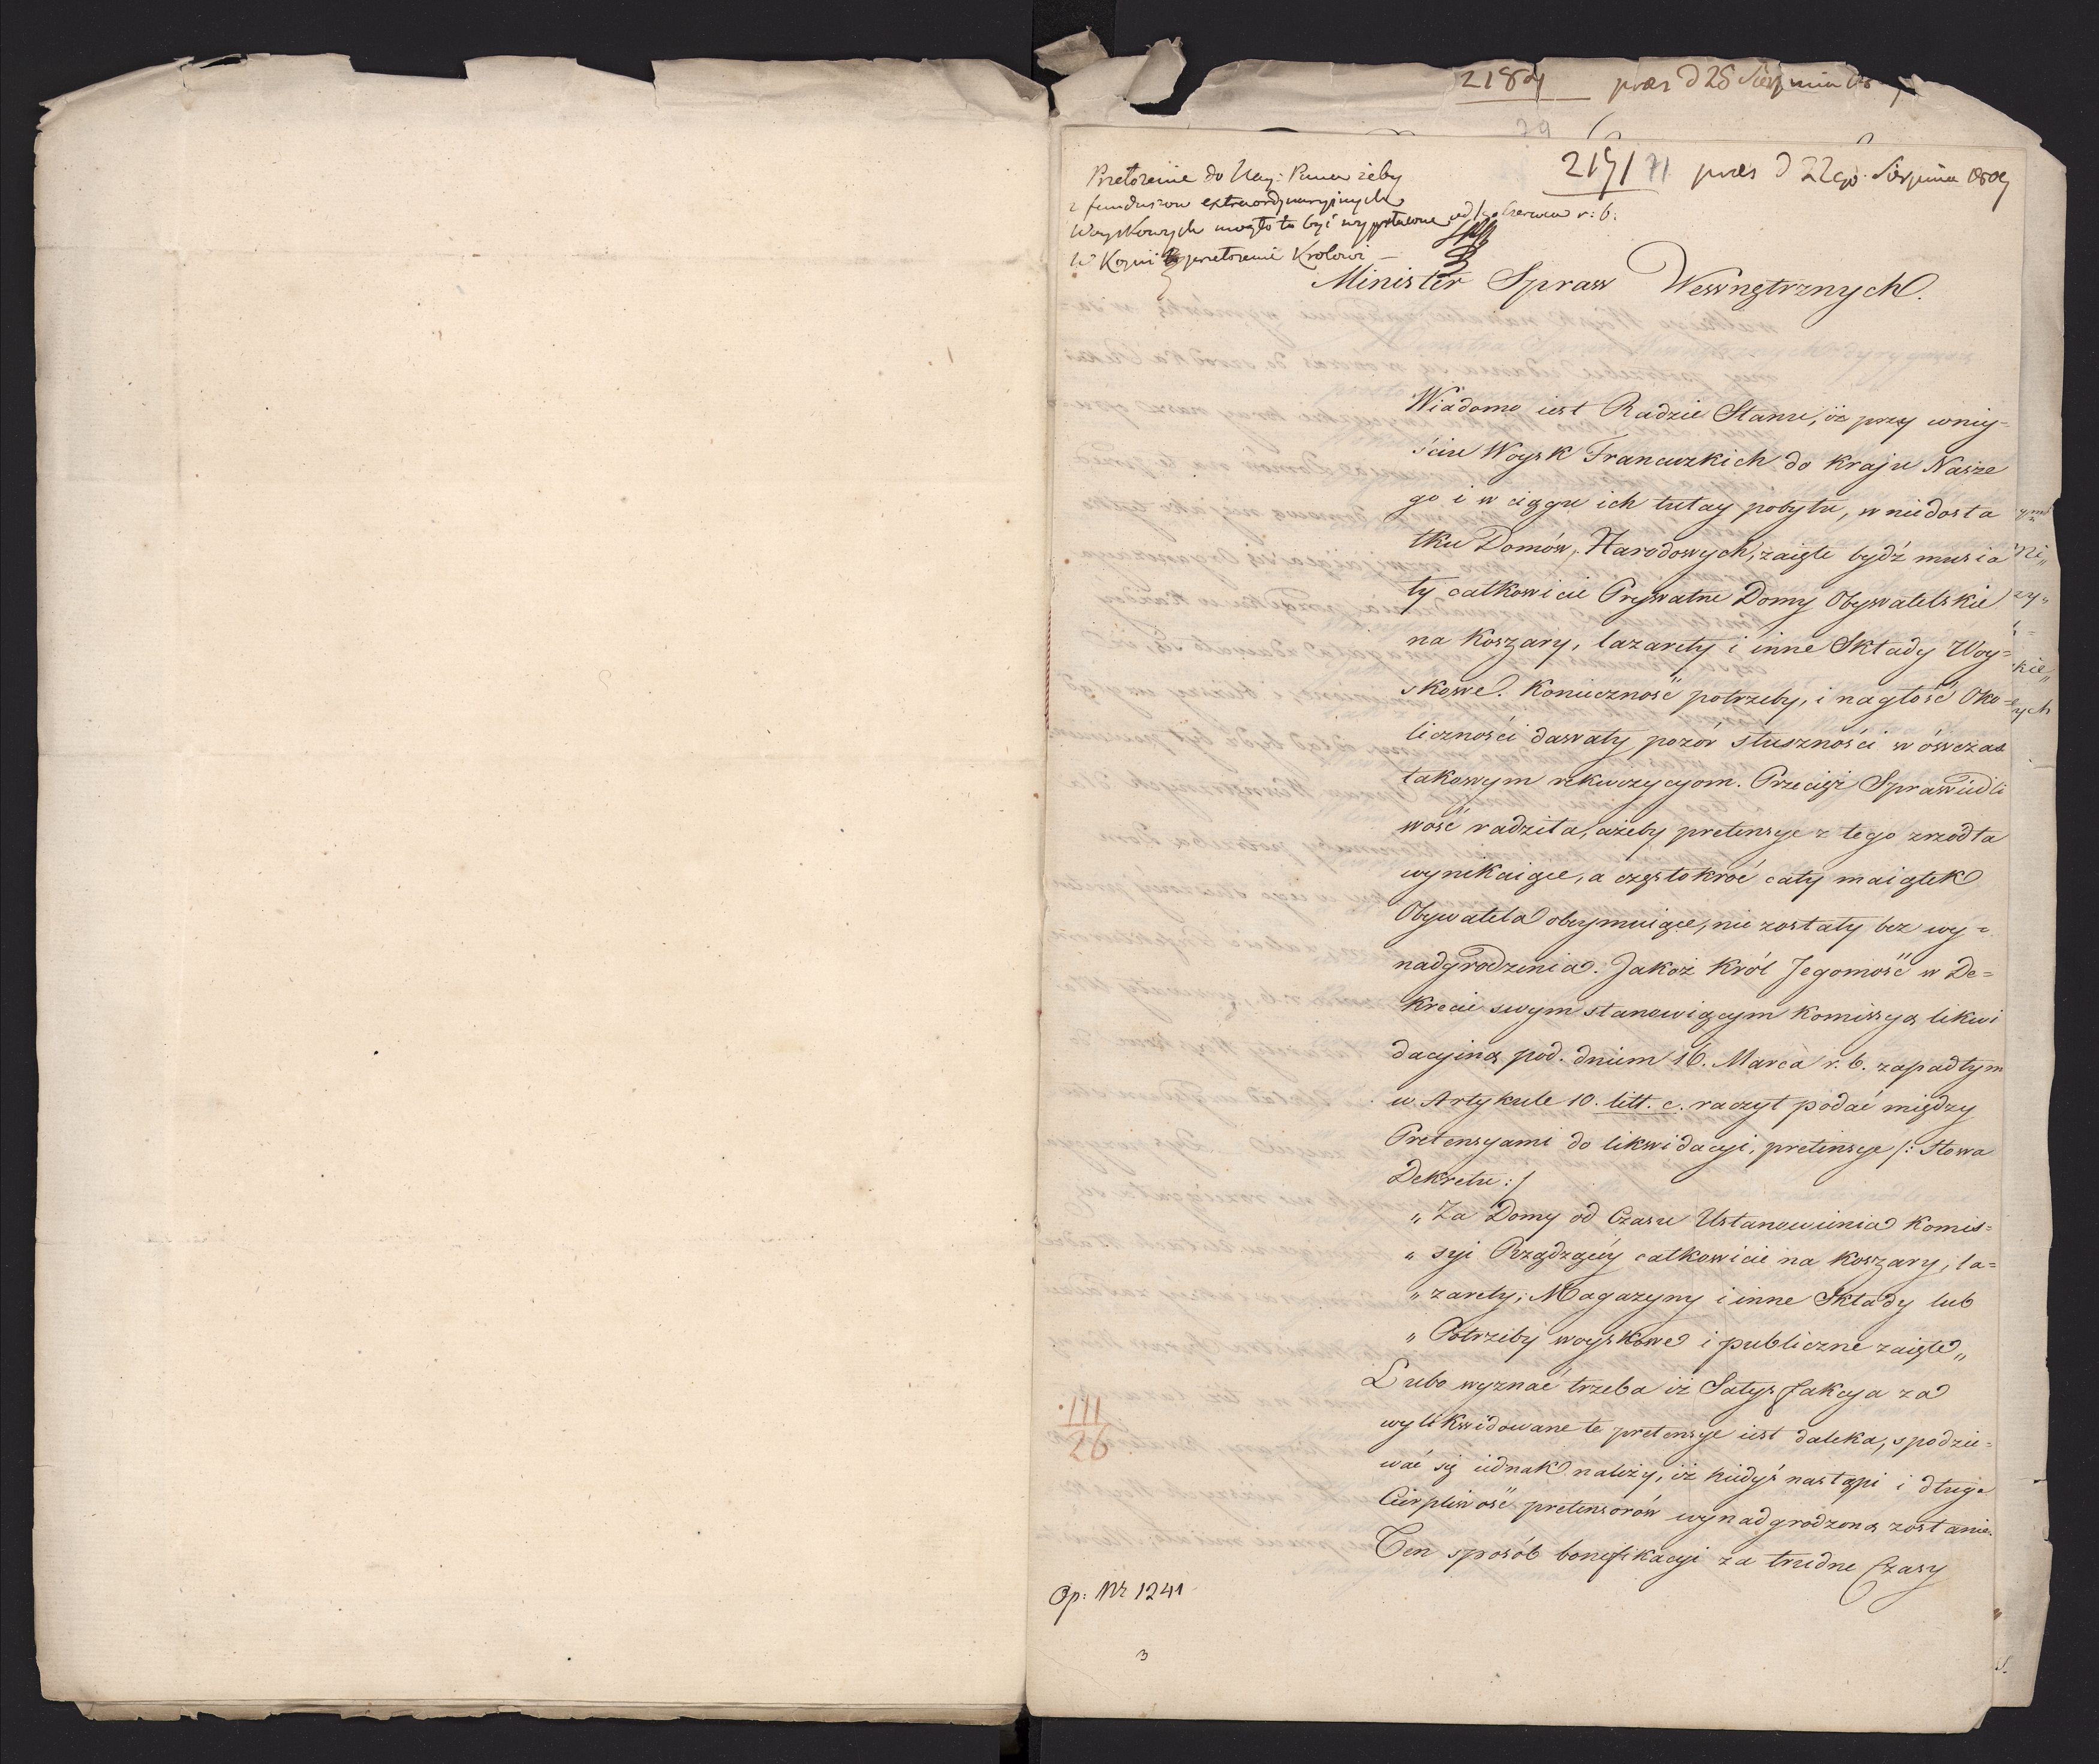 2184 præs d 28 Sierpnia 180
79
2191 71 præs d 22go Sierpnia 1809
Przełożenie do Nay: Pana żeby
z funduszow extraordynaryinych
Woyskowych mogło to być wypłacone od 1go Czerwca r: b:
W Kopii przełożenie Krolowi —
Minister Spraw Wewnętrznych.
Wiadomo iest Radzie Stanu, iż przy wniy=
ściu Woysk Francuzkich do kraju Nasze
go i w ciągu ich tutay pobytu, w niedosta
tku Domów, Narodowych, zaięte bydź musia
ły całkowicie Prywatne Domy Obywatelskie
na Koszary, lazarety i inne Składy Woy=
skowe. Konieczność potrzeby, i nagłość Oko=
liczności dawały pozór słuszności wówczas
takowym rekwizycyom. Przecięż Sprawiedli
wość radziła, ażeby pretensye z tego zrzodła
wynikaiące, a częstokroć cały maiątek
Obywatela obeymuiące, nie zostały bez wy=
nadgrodzenia. Jakoż Król Jegomość w De=
krecie swym stanowiącym Komissyą likwi
dacyiną pod. dniem 16. Marca r. b. zapadłym
w Artykule 10. litt. c. raczył podać między
Pretensyami do likwidacyi, pretensye /: Słowa
Dekretu :/
„ Za Domy od Czasu Ustanowienia Komis=
„ syi Rządzącéy całkowicie na Koszary, la=
„ zarety, Magazyny i inne Składy lub
„ Potrzeby woyskowe i publiczne zaięte „
Lubo wyznać trzeba iż Satysfakcya za
wylikwidowane te pretensye iest daleka, spodzie=
wać się iednak należy, iż kiedyś nastąpi i długa
Cierpliwość pretensorów wynadgrodzoną zostanie.
Ten sposób bonifikacyi za trudne Czasy
111
26
Op: Nr 1241
3